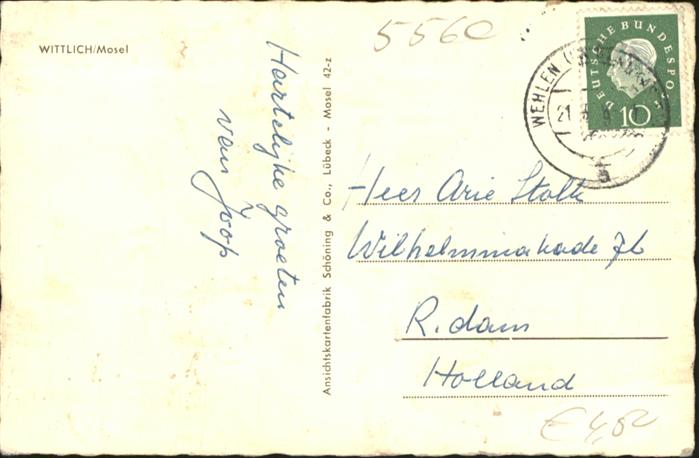 WITTLICH/Mosel
5560
Hartelijke groeten
van Joop
Ansichtskartenfabrik Schöning & Co., Lübeck - Mosel 42-z
DEUTSCHE BUNDESPOST
10
WEHLEN
21
a
Heer Arie Stolk
Wilhelminakade 76
R.dam
Holland